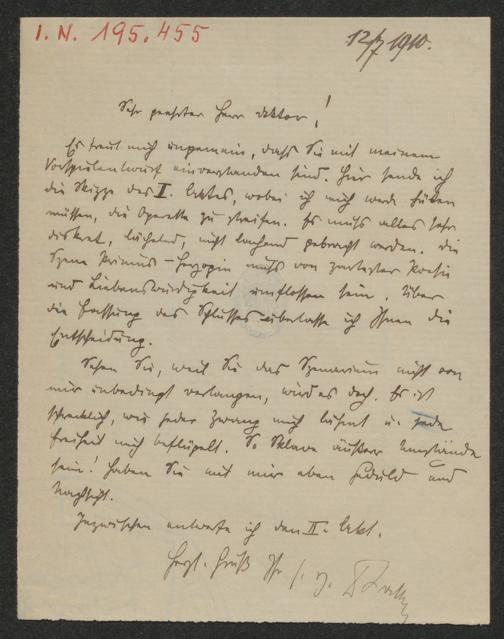 I. N. 195.455
12/7 1910.
Sehr geehrter Herr Doktor!
Es freut mich ungemein, dass Sie mit meinem
Vorspielentwurf einverstanden sind. Hier sende ich
die Skizze des I. Aktes, wobei ich mich werde hüten
müssen, die Operette zu streifen. Es muss alles sehr
diskret, lächelnd, nicht lachend gebracht werden. Die
Szene Primus – Herzogin muss von zartester Poesie
und Liebenswürdigkeit umflossen sein. Über
die Fassung des Schlusses überlasse ich Ihnen die
Entscheidung.
Sehen Sie, weil Sie das Szenarium nicht von
mir unbedingt verlangen, wird es doch. Es ist
schrecklich, wie jeder Zwang mich lähmt u. jede
Freiheit mich beflügelt. So Sklave äußerer Umstände
sein! Haben Sie mit mir eben Geduld und
Nachsicht.
Inzwischen entwerfe ich den II. Akt.
Herzl. Gruß Ihr